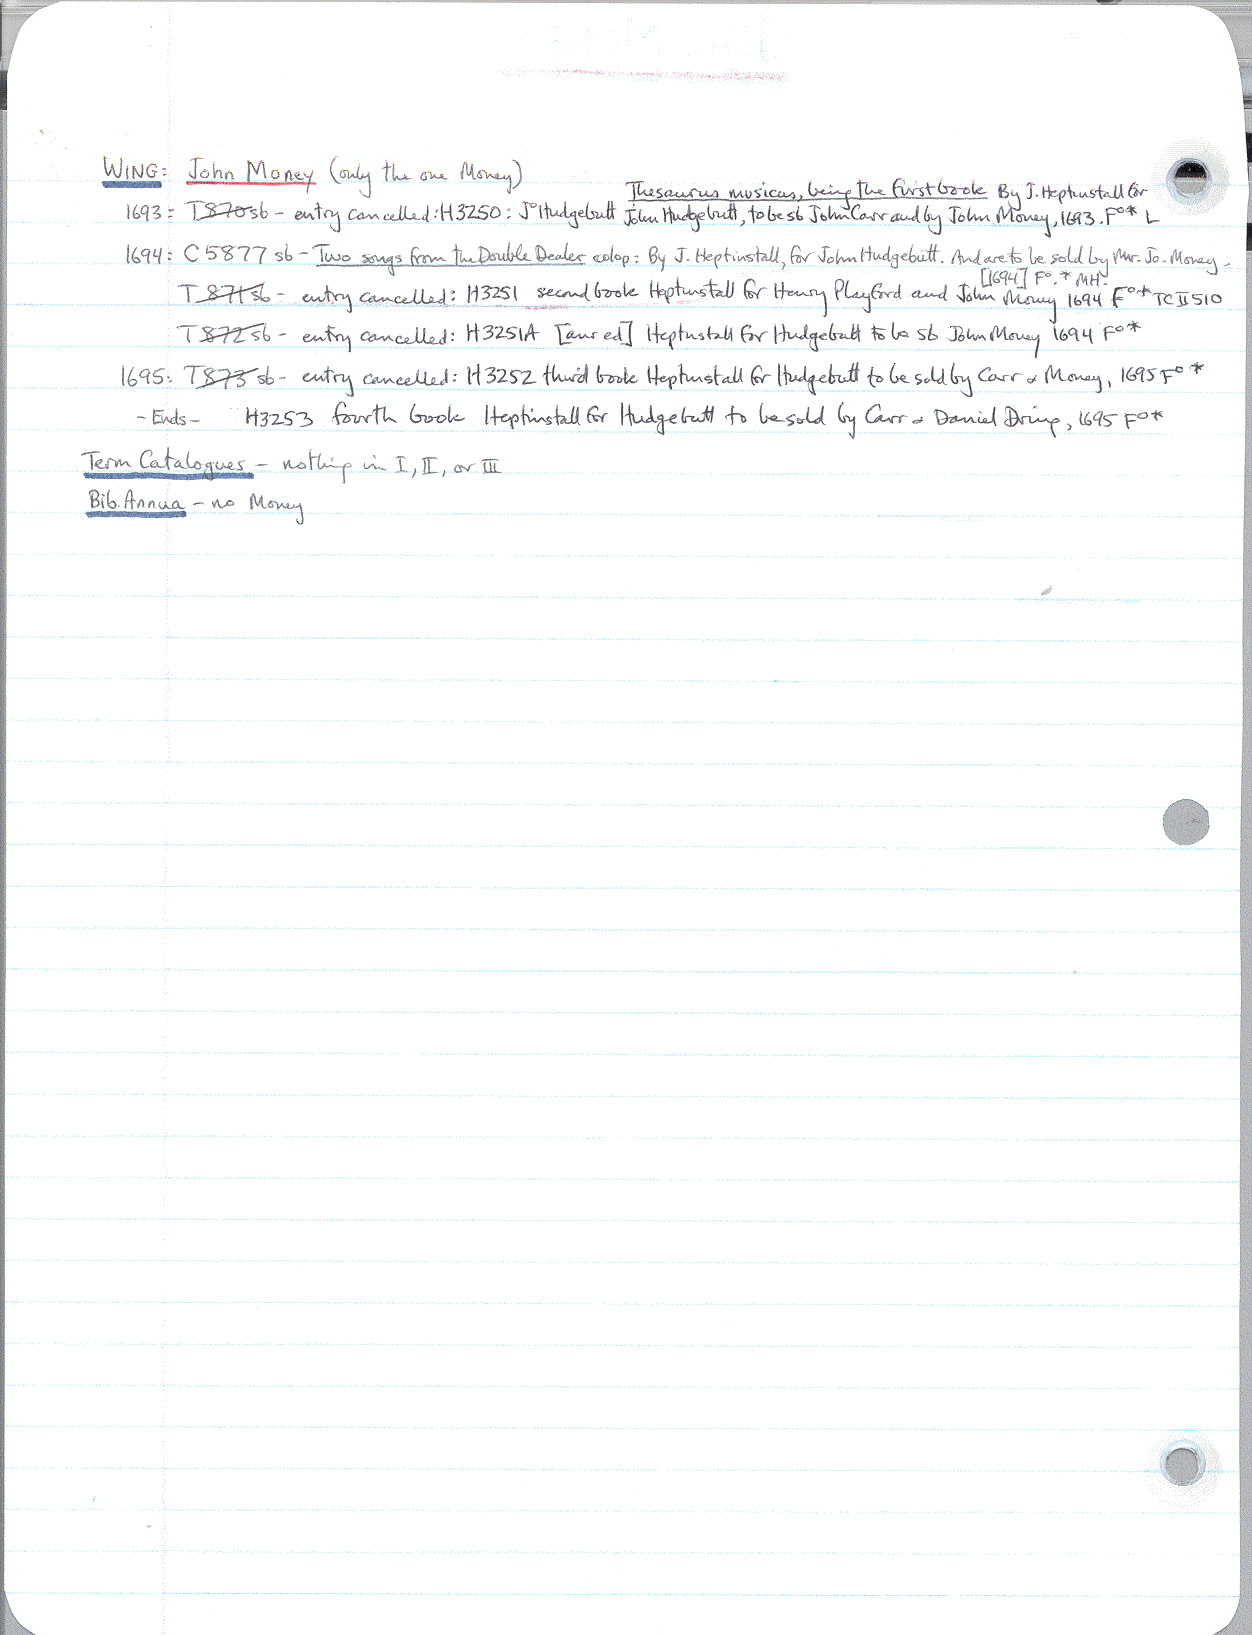 WING: John Money (only the one Money)
Thesaurus musicus, being the first booke By J. Heptinstall for
1693: T870 sb - entry cancelled: H3250: Jº Hudgebutt John Hudgebutt, to be sb John Carr and by John Money, 1693. Fº* L
1694: C5877 sb - Two songs from the Double Dealer colop: By J. Heptinstall, for John Hudgebutt. And are to be sold by Mr. Jo. Money.
[1694] Fº.* MH.
T871 sb - entry cancelled: H3251 second booke Heptinstall for Henry Playford and John Money 1694 Fº* TC II 510
T872 sb - entry cancelled: H3251A [anr ed] Heptinstall for Hudgebutt to be sb John Money 1694 Fº*
1695: T873 sb - entry cancelled: H3252 third booke Heptinstall for Hudgebutt to be sold by Carr & Money, 1695 Fº*
- Ends - H3253 fourth book Heptinstall for Hudgebutt to be sold by Carr & Daniel Dring, 1695 Fº*
Term Catalogues - nothing in I, II, or III
Bib. Annua - no Money